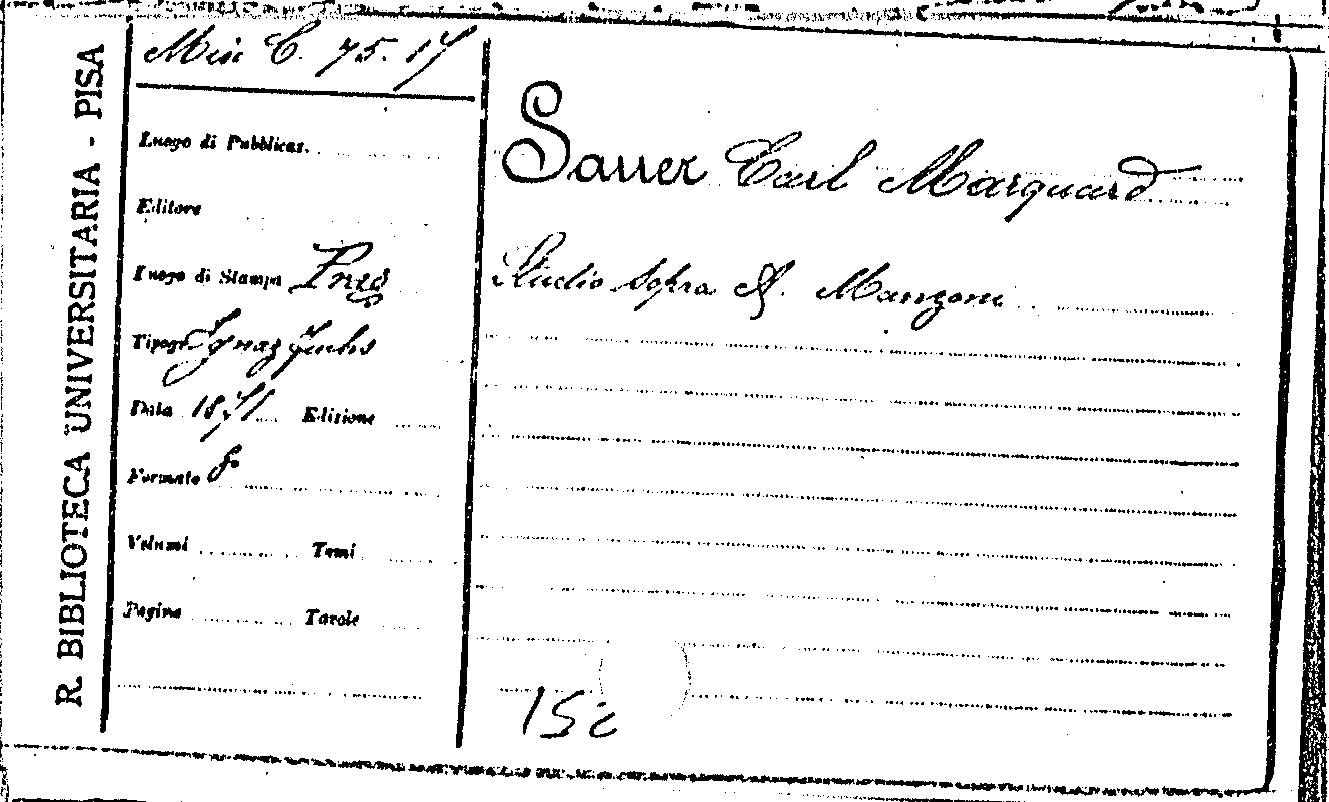 R. BIBLIOTECA UNIVERSITARIA - PISA
Mis C. 75. 17
Luogo di Pubblicaz.
Editore
Luogo di Stampa Prag
Tipogr Ignaz Fuchs
Data 1871 Edizione
Formato 8°
Volumi Tomi
Pagine Tavole
Sauer Carl Marquard
Studio sopra A. Manzoni